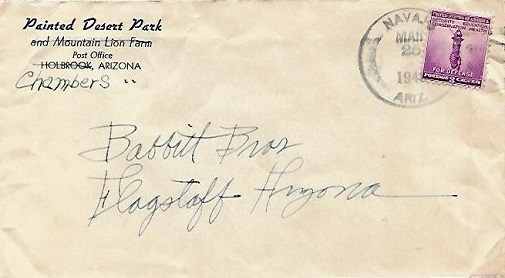 Painted Desert Park
and Mountain Lion Farm
Post Office
HOLBROOK, ARIZONA
Chambers "
NAVAJO
MAR
25
ARIZ
UNITED STATES OF AMERICA
SECURITY EDUCATION
CONSERVATION HEALTH
FOR DEFENSE
POSTAGE 3 CENTS
Babbitt Bros
Flagstaff Arizona